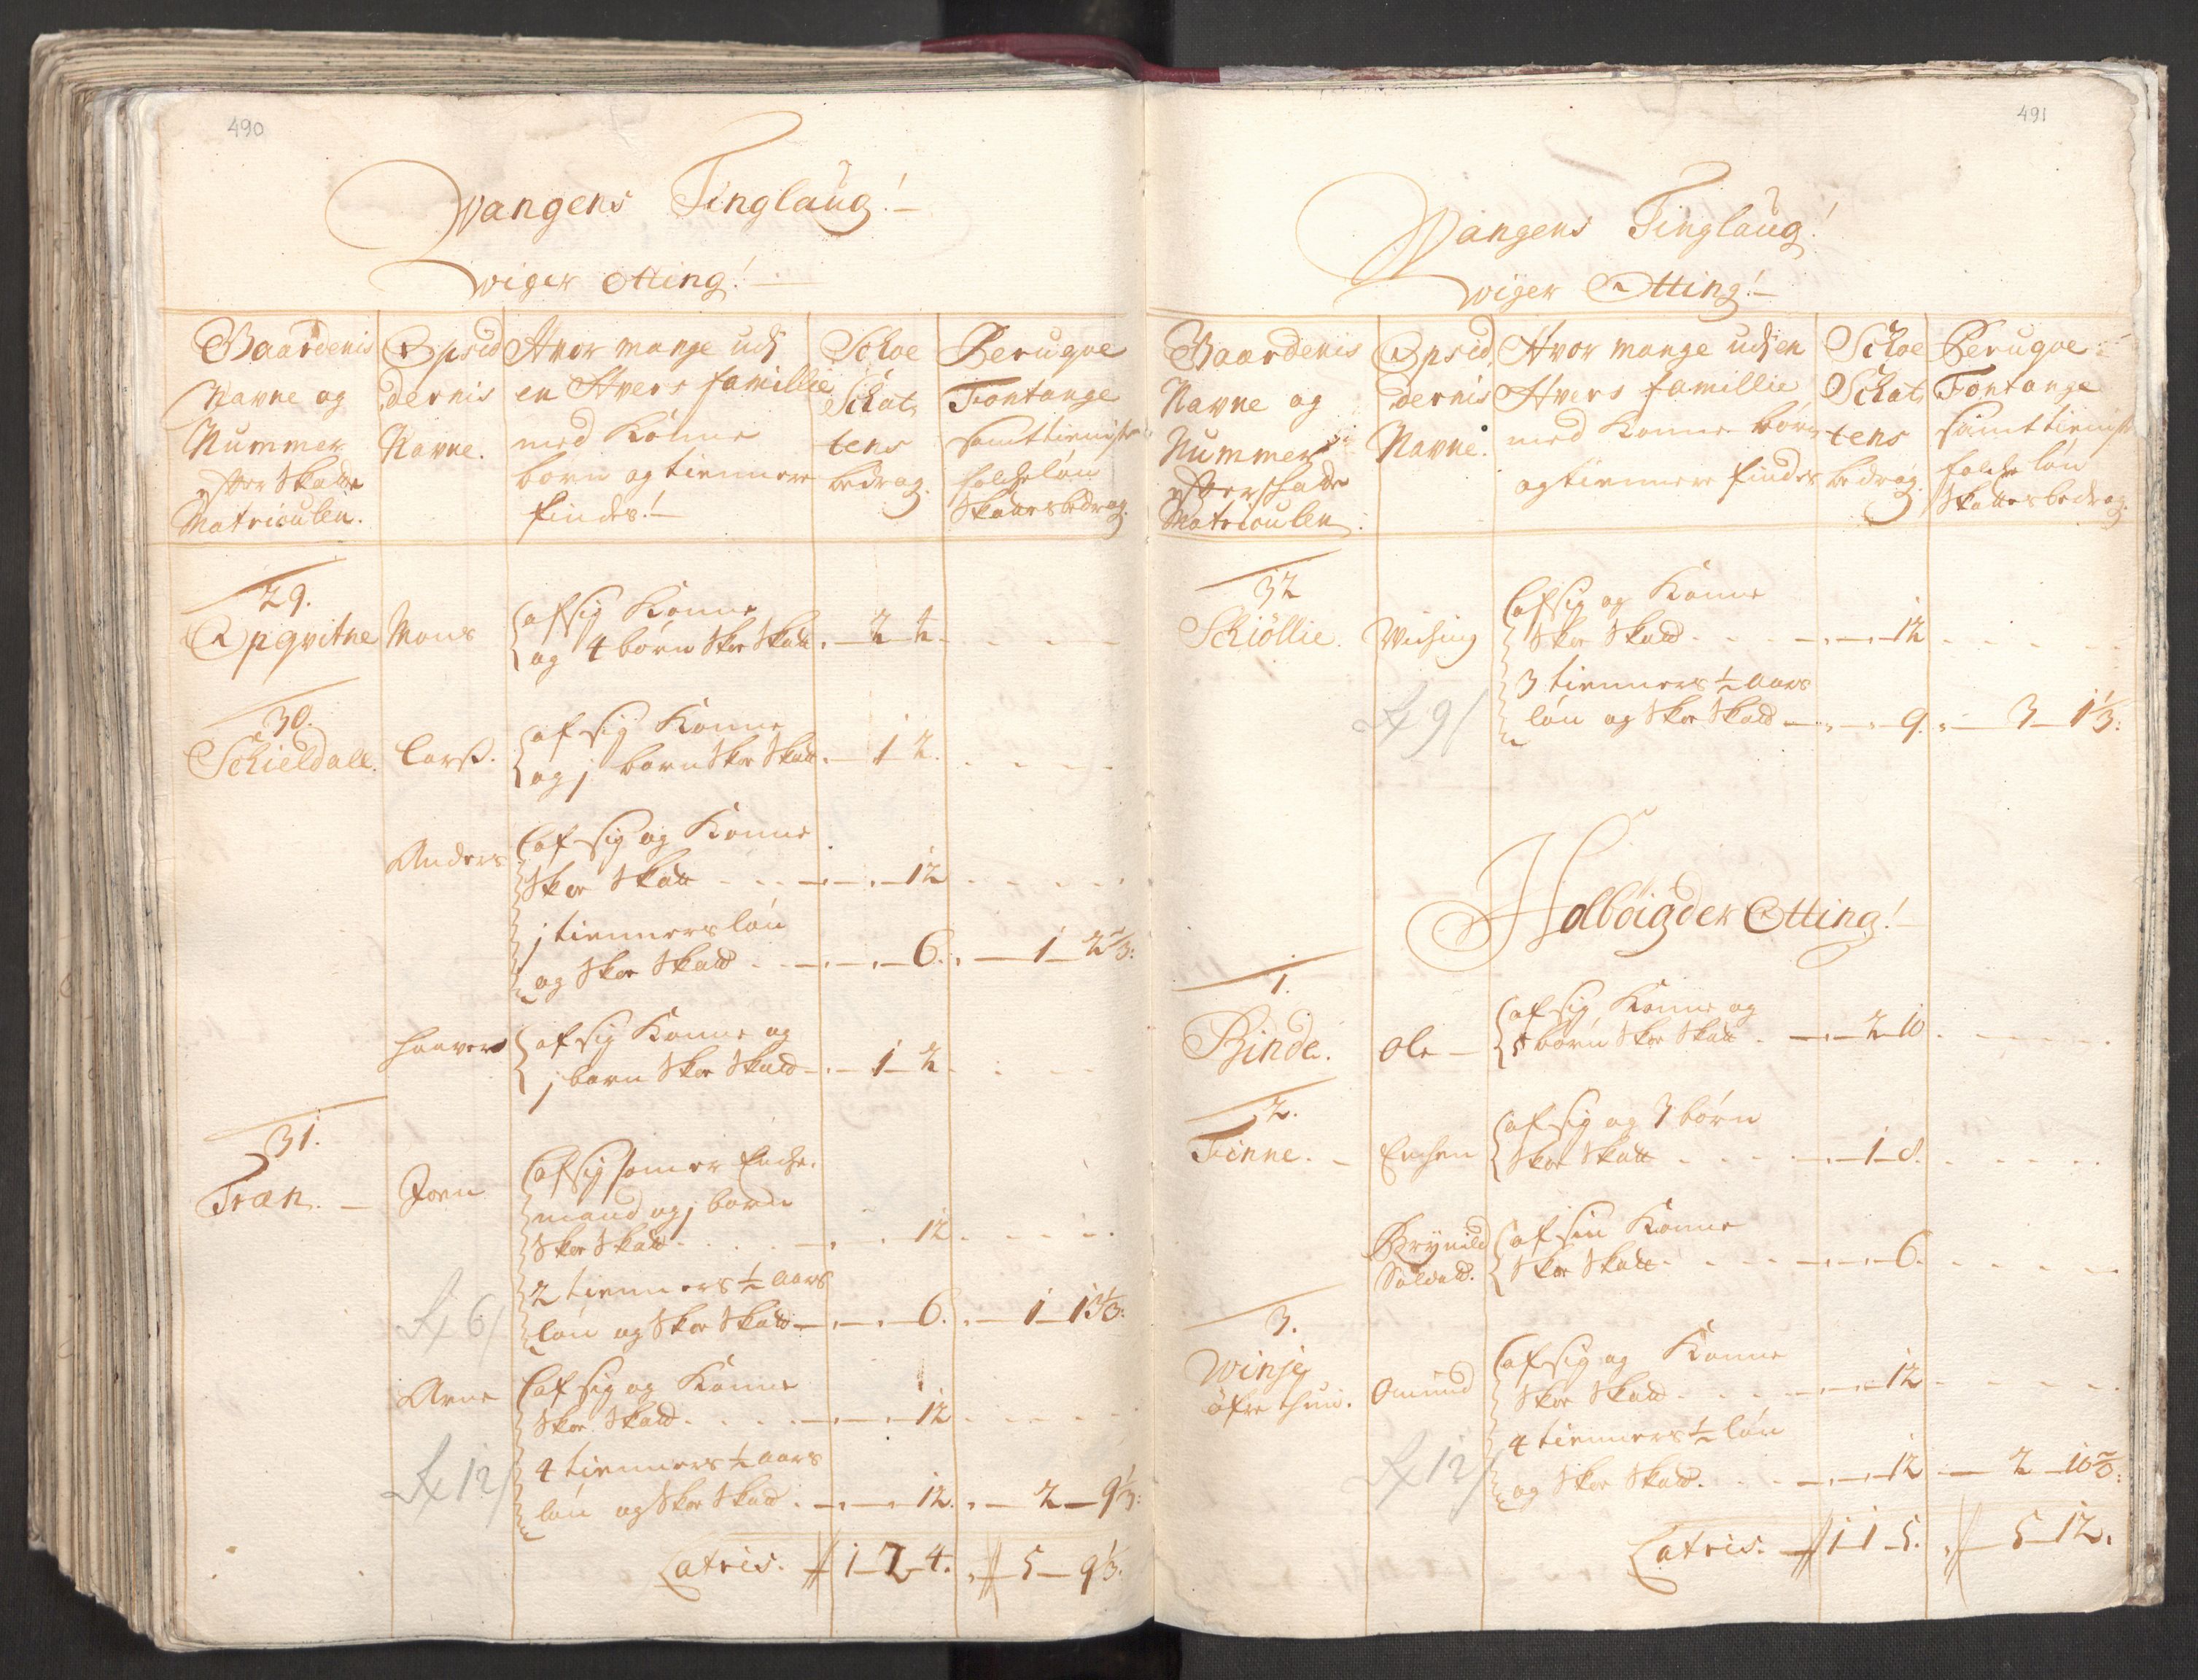 490
Wangens Tinglaug!
wiger otting!
Gaardenis
Navne og
Nummer
efter Skatte
Matriculen.
Opsid
dernis
Navne.
Hvor mange udj
en Hvers familllie
med Konne
born og tiennere
findes!
Schoe
Schat
tens
bedrag.
Peruqve
Fontange
samt tieniste
folche løn
Skattes bedrag.
29.
Opqvitne Mons
af sig Konne
og 4 børn Skoe Skatt 2 2
30.
Schieldall. Larss.
af sig Konne
og j barn Skoe Skatt 1 2
Anders
af sig og Konne
Skoe Skatt 12
j tienners løn
og Skoe Skatt 6. 1 2 2/3:
Haaver
af sig Konne og
j barn Skoe Skatt 1 2
31.
Træn. Joen
af sig som er Enche
mand og j barn
Skoe Skatt 12
2 tienners 1/2 aars
6/ løn og Skoe Skatt 6. 1 13 1/3:
Arne
af sig og Konne
Skoe Skatt 12
4 tienners 1/2 aars
12/ løn og Skoe Skatt 12. 2 9 1/3:
Latris. 1 7 4. 5 9 1/3.
491
Wangens Tinglaug!
wiger Otting!
Gaardenis
Navne og
Nummer
efter schatte
Matriculen.
Opsid
dernis
Navne.
Hvor mange udj en
Hvers famillie
med Konne børn
og tiennere findes
Schoe
Schat
tens
bedrag.
Peruqve
Fontange
samt tieniste
folche løn
Skattes bedrag.
32
Schiöllie.
af sig og Konne
Skoe Skatt 12
3 tienners 1/2 aars
9/ løn og Skoe Skatt 9. 3 1 1/3:
Holbøigder Otting!
1.
Binde. Ole
af sig Konne og
5 børn Skoe Skatt 2 10
2.
Finne. Enchen
af sig og 3 børn
Skoe Skatt 1 8.
Brynild
Soldatt.
af sin Konne
Skoe Skatt 6.
3.
Winje
øfre thun. Omund
af sig og Konne
Skoe Skatt 12
4 tienners 1/2 løn
12/ og Skoe Skatt. 12 2 10 2/3:
Latris. 1 1 5. 5 12.